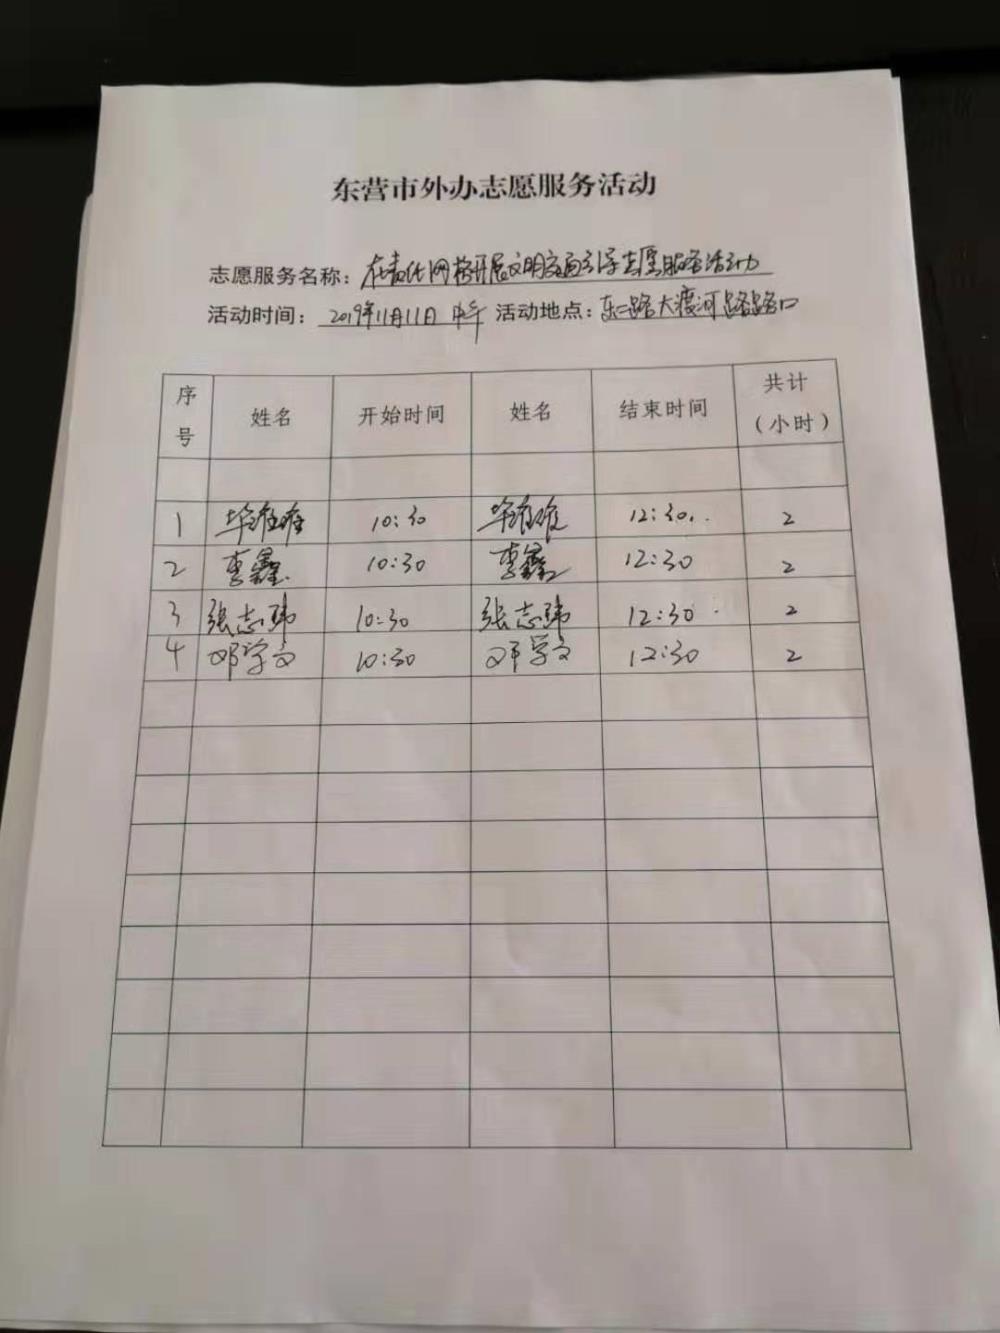 东营市外办志愿服务活动
志愿服务名称：在责任网格开展文明交通引导志愿服务活动
活动时间：2019年11月11日 中午 活动地点：东二路大渡河路路口
序号 姓名 开始时间 姓名 结束时间 共计（小时）
1 10:30 12:30 2
2 李鑫 10:30 李鑫 12:30 2
3 张志玮 10:30 张志玮 12:30 2
4 邓学文 10:30 邓学文 12:30 2